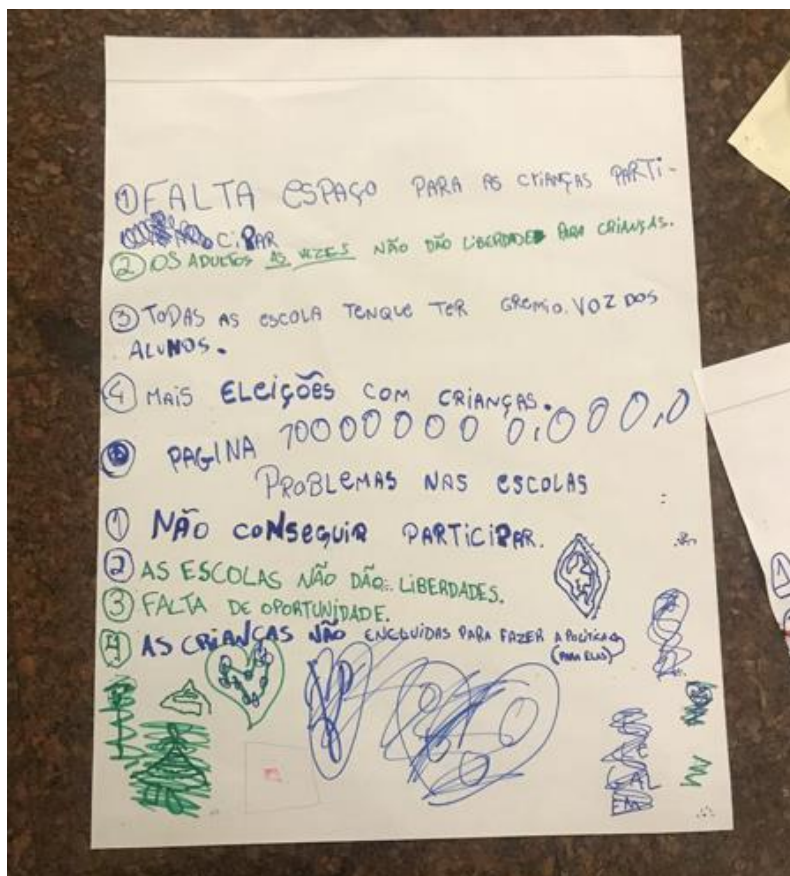 ① FALTA ESPAÇO PARA AS CRIANÇAS PARTI-
CIPAR
② OS ADULTOS AS VEZES NÃO DÃO LIBERDADE PARA CRIANÇAS.
③ TODAS AS ESCOLA TENQUE TER GREMIO. VOZ DOS
ALUNOS.
④ MAIS ELEIÇÕES COM CRIANÇAS.
PAGINA
PROBLEMAS NAS ESCOLAS
① NÃO CONSEGUIR PARTICIPAR.
② AS ESCOLAS NÃO DÃO LIBERDADES.
③ FALTA DE OPORTUNIDADE.
④ AS CRIANÇAS NÃO ENCLUIDAS PARA FAZER A POLITICA
(PARA ELAS)